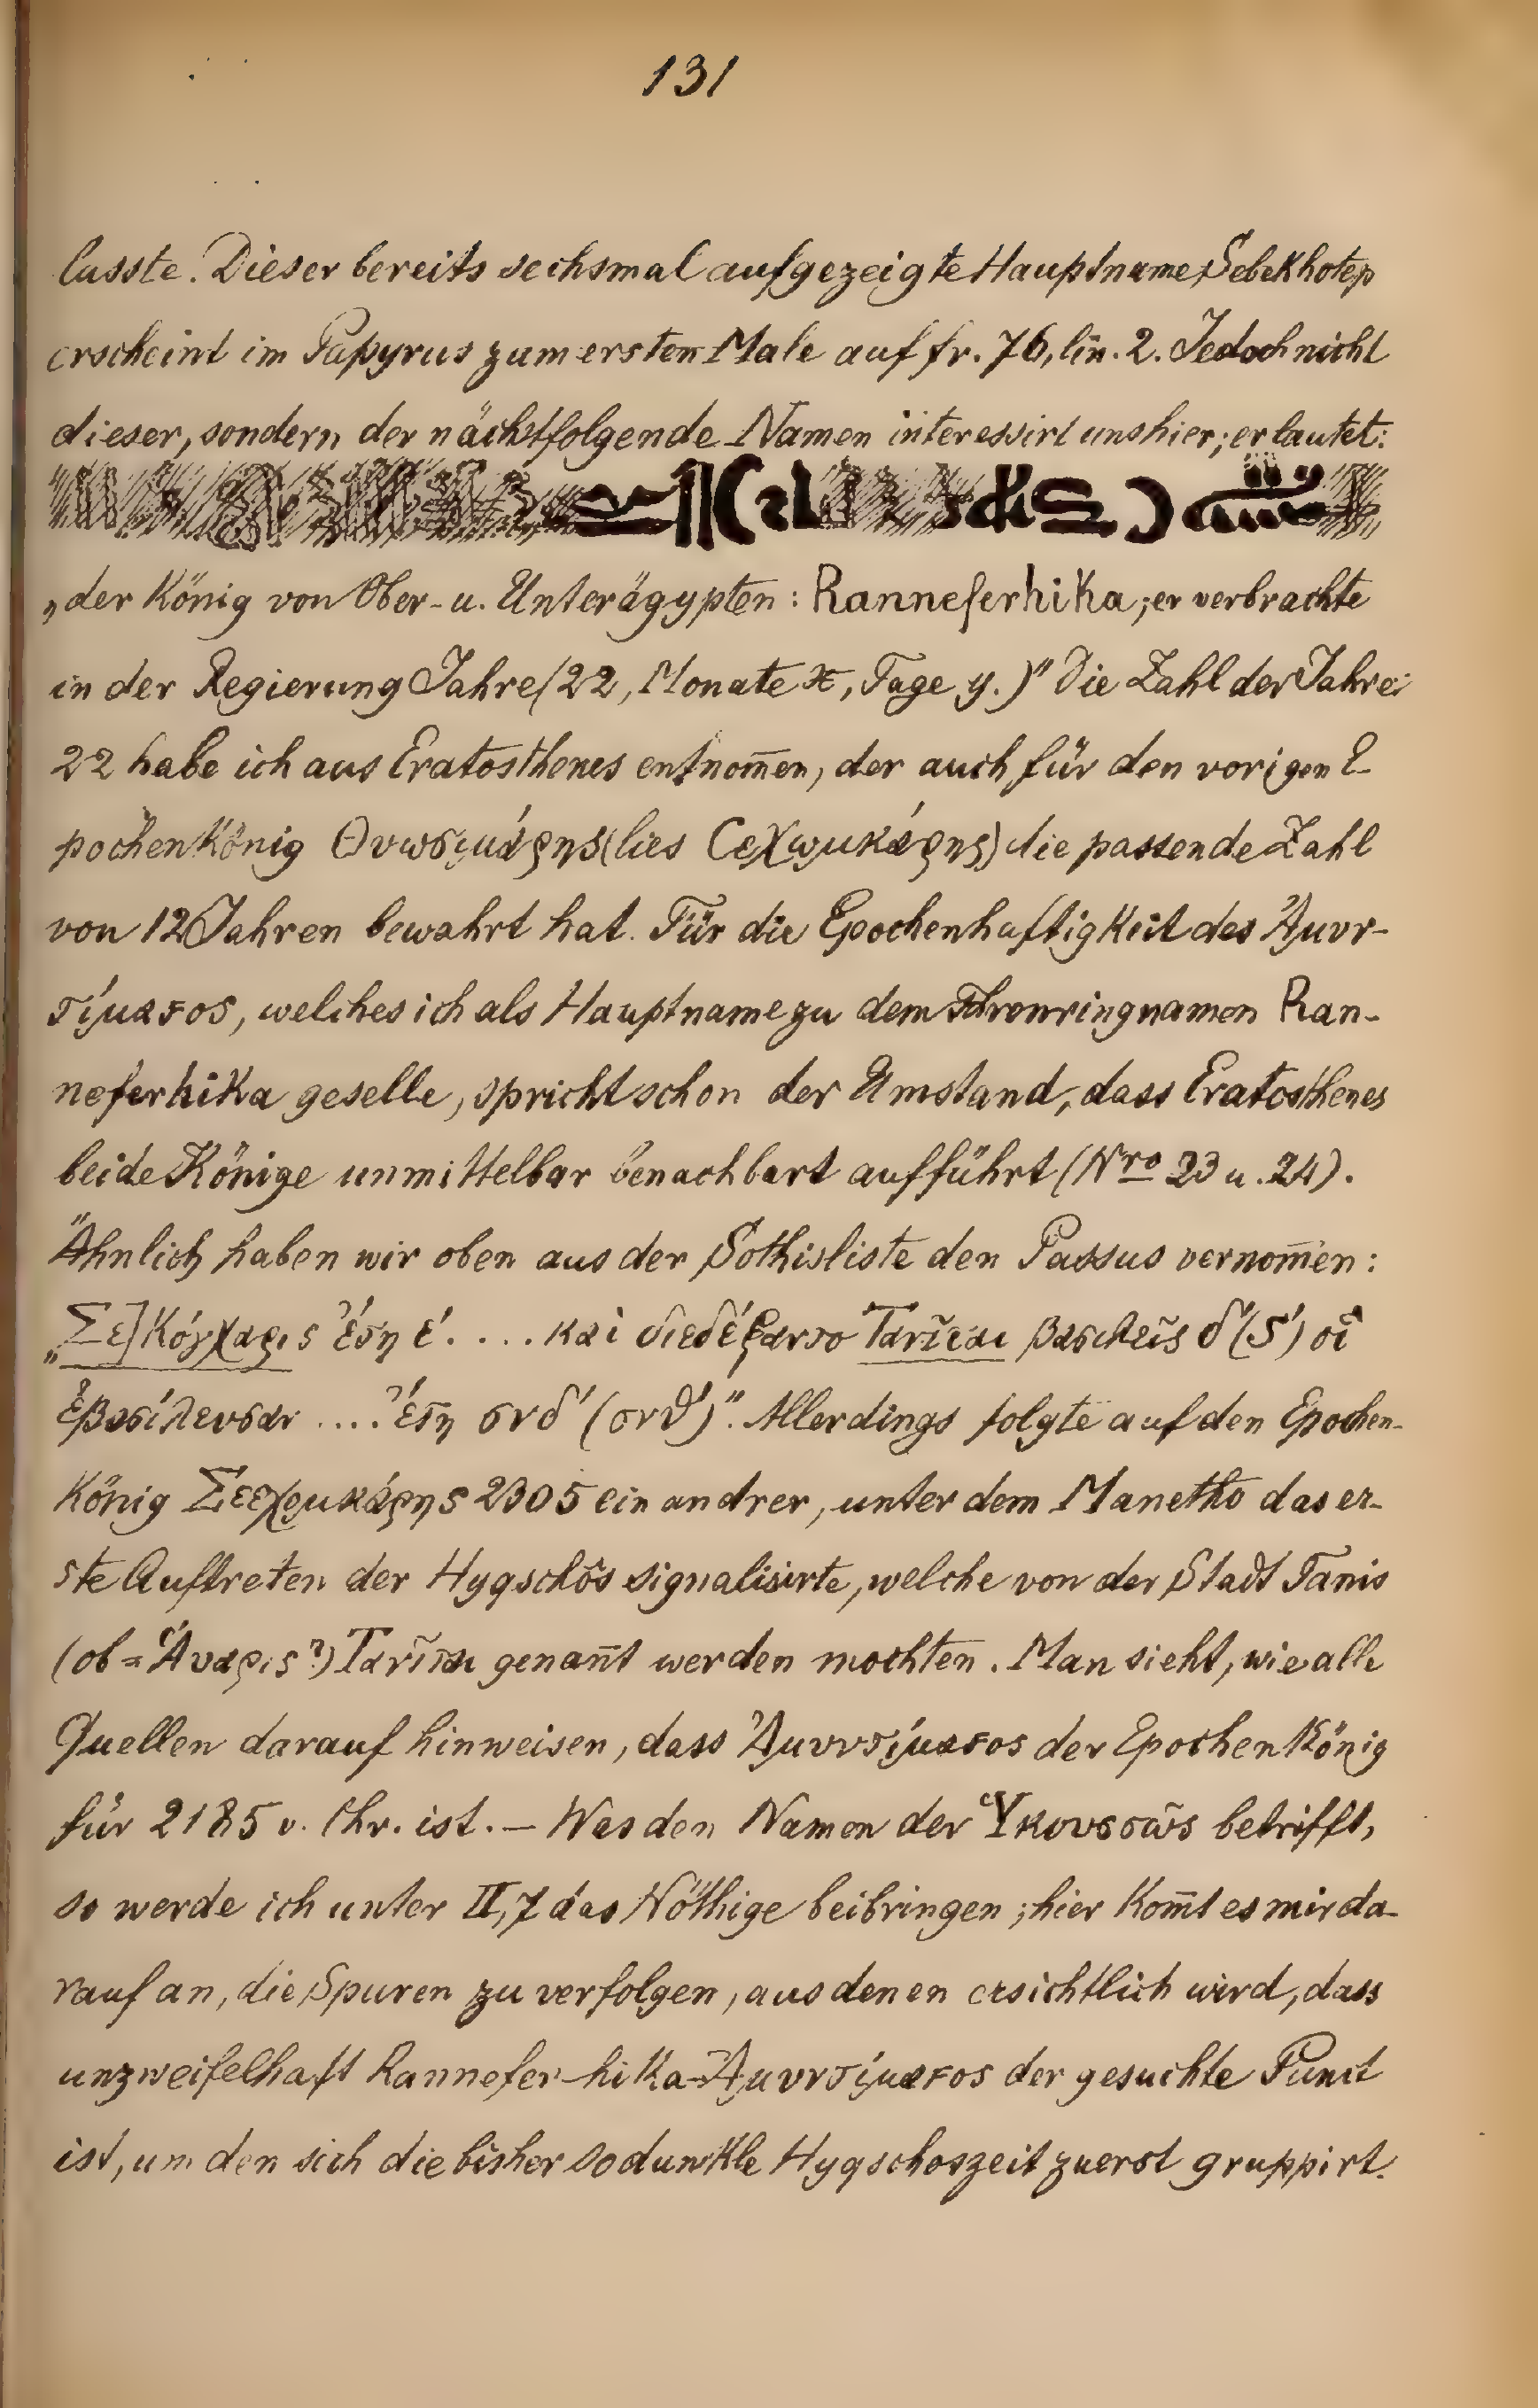 131
lusste. Dieser bereits sechsmal aufgezeigte Hauptname Sebekhotep
erscheint im Papyrus zum ersten Male auf fr. 76, lin. 2. Jedoch nicht
dieser, sondern der nächstfolgende Namen interessirt uns hier; er lautet:
„der König von Ober- u. Unterägypten: Ranneferhika; er verbrachte
in der Regierung Jahre (22, Monate x, Tage y.)" Die Zahl der Jahre:
22 habe ich aus Eratosthenes entnom̄en, der auch für den vorigen E-
pochenkönig Θυωσιμάρης (lies Σεχωμκάρης) die passende Zahl
von 12 Jahren bewahrt hat. Für die Epochenhaftigkeit des Ἀμυν-
τίμαιος, welches ich als Hauptname zu dem Thronringnamen Ran-
neferhika geselle, spricht schon der Umstand, dass Eratosthenes
beide Könige unmittelbar benachbart aufführt (Nro 23 u. 24).
Ähnlich haben wir oben aus der Sothisliste den Passus vernom̄en:
„Σε]Κόγχαρις ἔτη ε΄. . . . καὶ διεδέξαντο Τανῖται βασιλεῖς δ΄(ς΄) οἳ
ἐβασίλευσαν .... ἔτη σνδ΄ (σνθ΄)". Allerdings folgte auf den Epochen-
könig 2305 ein andrer, unter dem Manetho das er-
ste Auftreten der Hyqschôs signalisirte, welche von der Stadt Tanis
(ob = Ἄυαρις?) Τανῖται genan̄t werden mochten. Man sieht, wie alle
Quellen darauf hinweisen, dass Ἀμυντίμαιος der Epochenkönig
für 2185 v. Chr. ist. — Was den Namen der Ὑκουσσῶς betrifft,
so werde ich unter II,7 das Nöthige beibringen; hier kom̄t es mir da-
rauf an, die Spuren zu verfolgen, aus denen ersichtlich wird, dass
unzweifelhaft Rannefer-hika-Ἀμυντίμαιος der gesuchte Punct
ist, um den sich die bisher so dunkle Hyqschoszeit zuerst gruppirt.